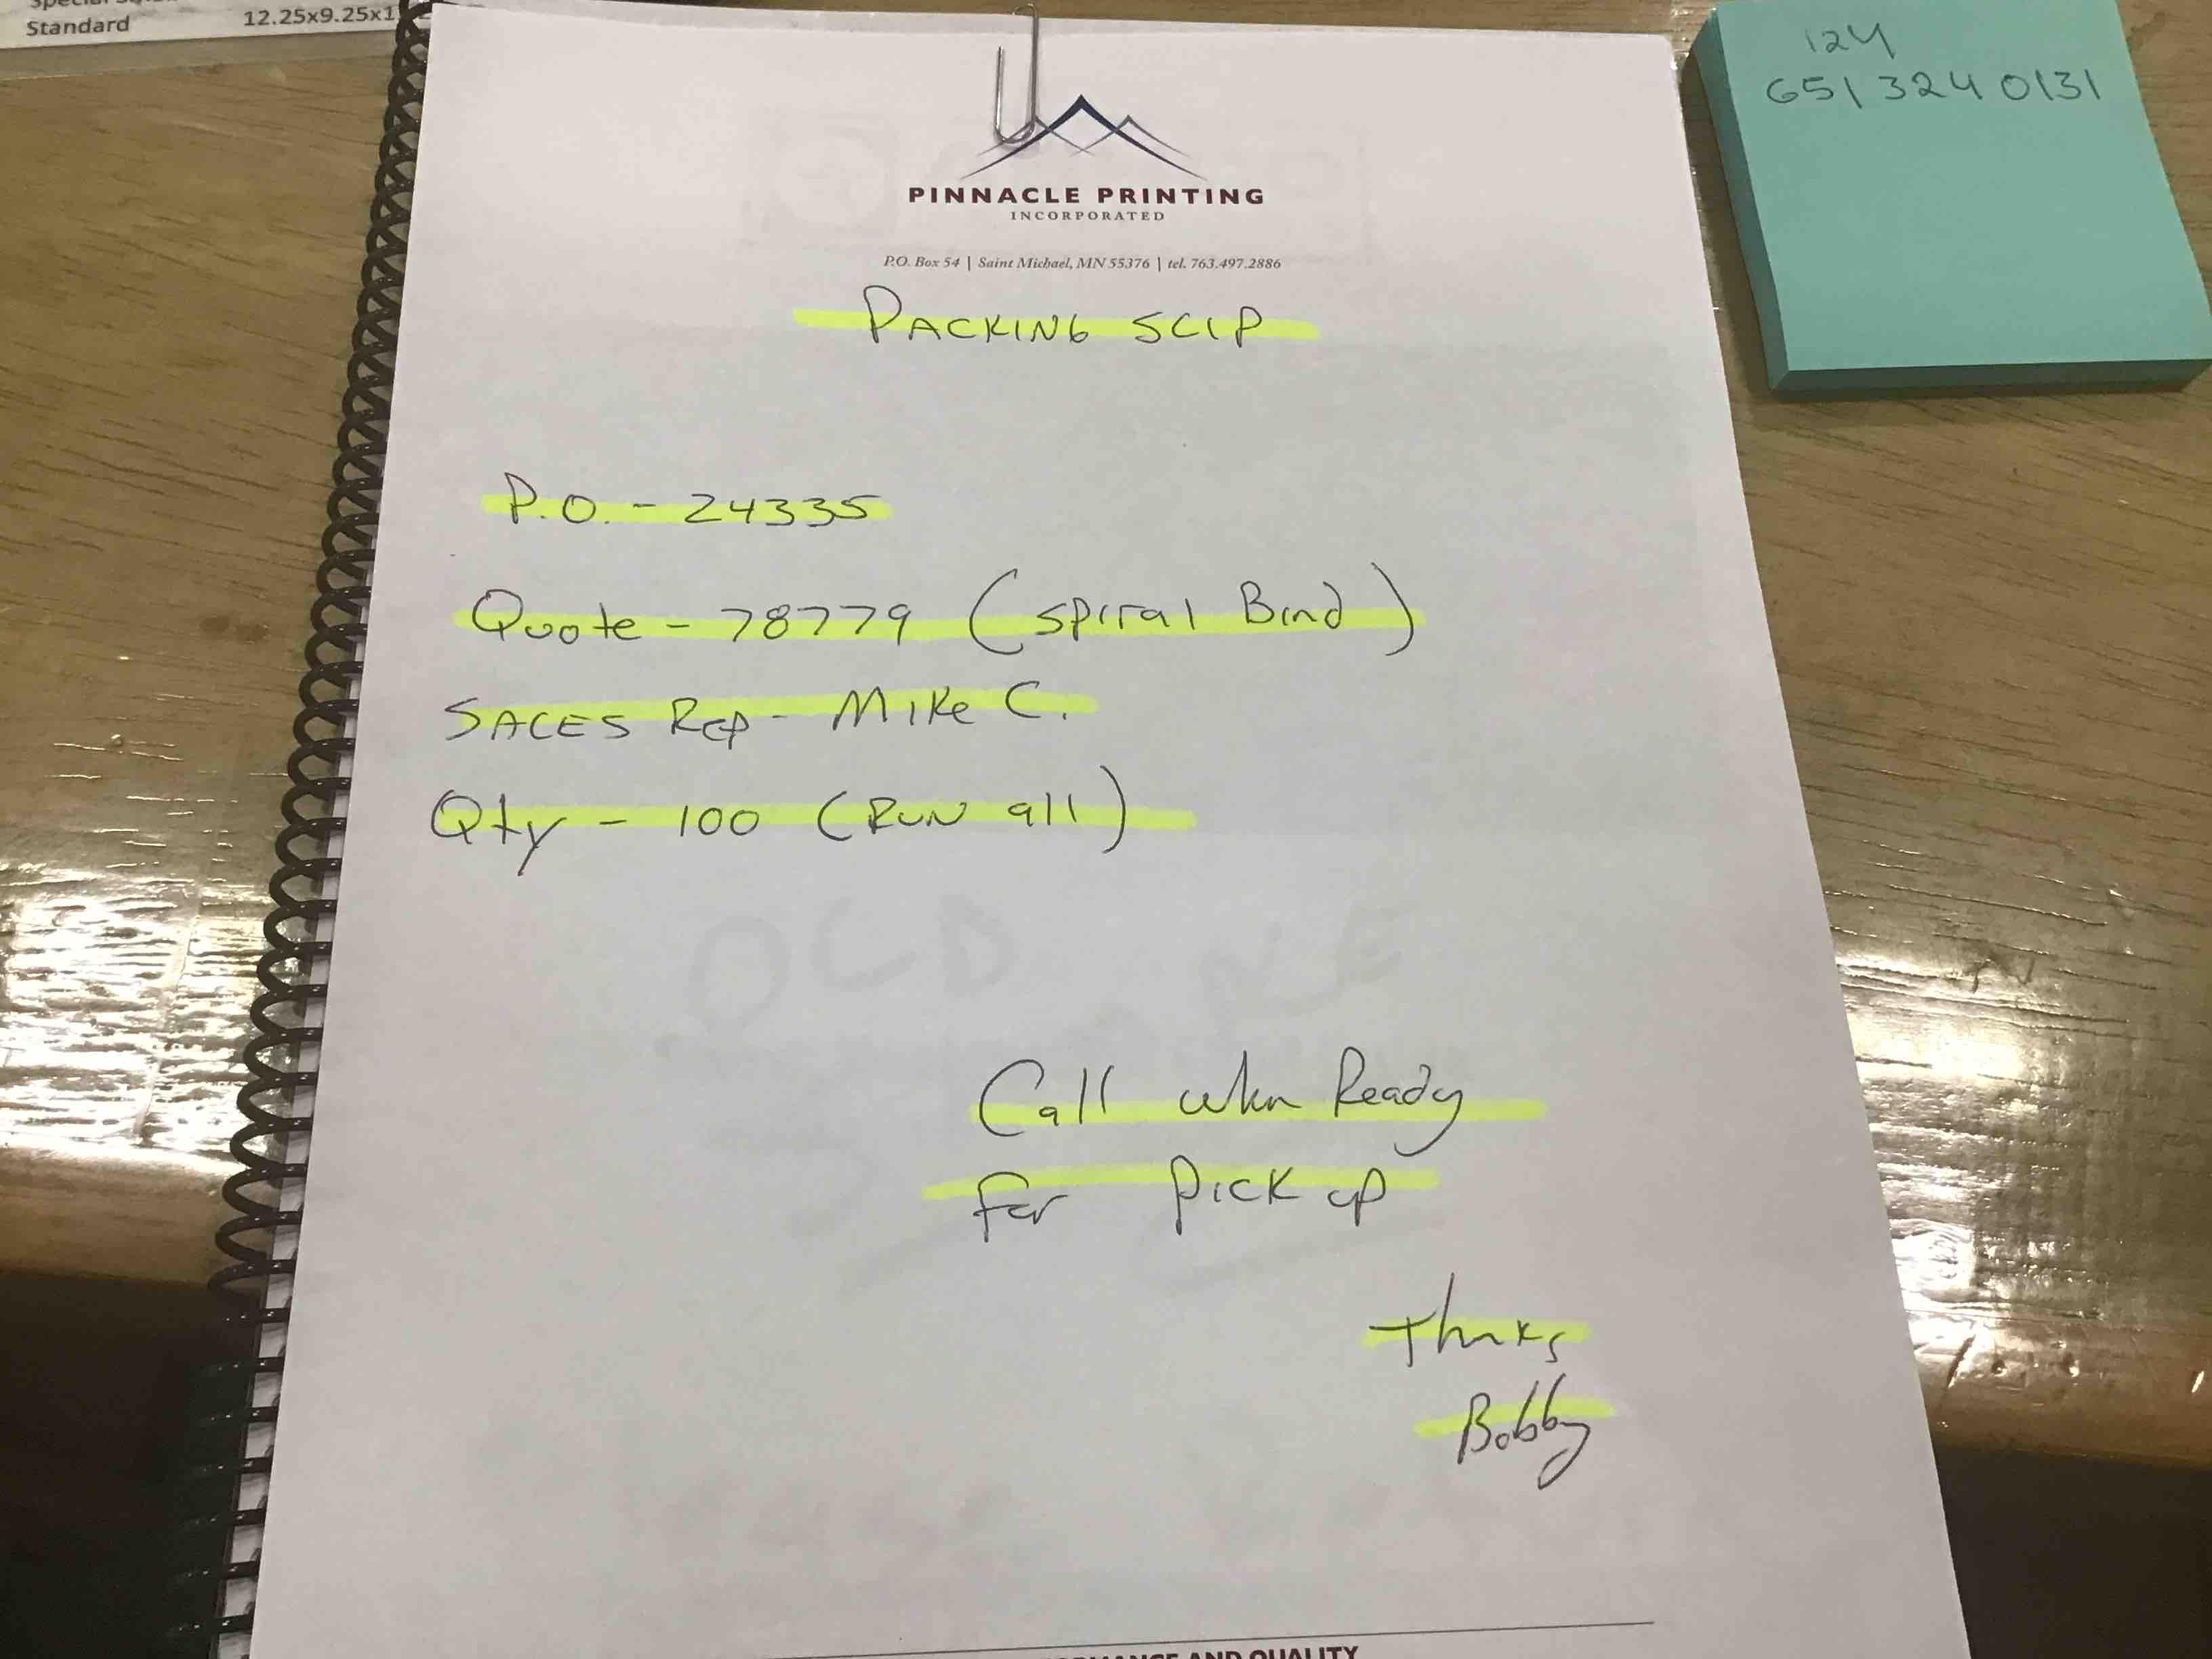 Standard 12.25x9.25x1
124
651 324 0131
PINNACLE PRINTING
INCORPORATED
P.O. Box 54 | Saint Michael, MN 55376 | tel. 763.497.2886
PACKING SLIP
P.O. - 24335
Quote - 78779 (Spiral Bind)
SALES Rep - Mike C.
Qty - 100 (Run all)
OLD
Call when Ready
for Pick up
Thanks
Bobby
AND QUALITY